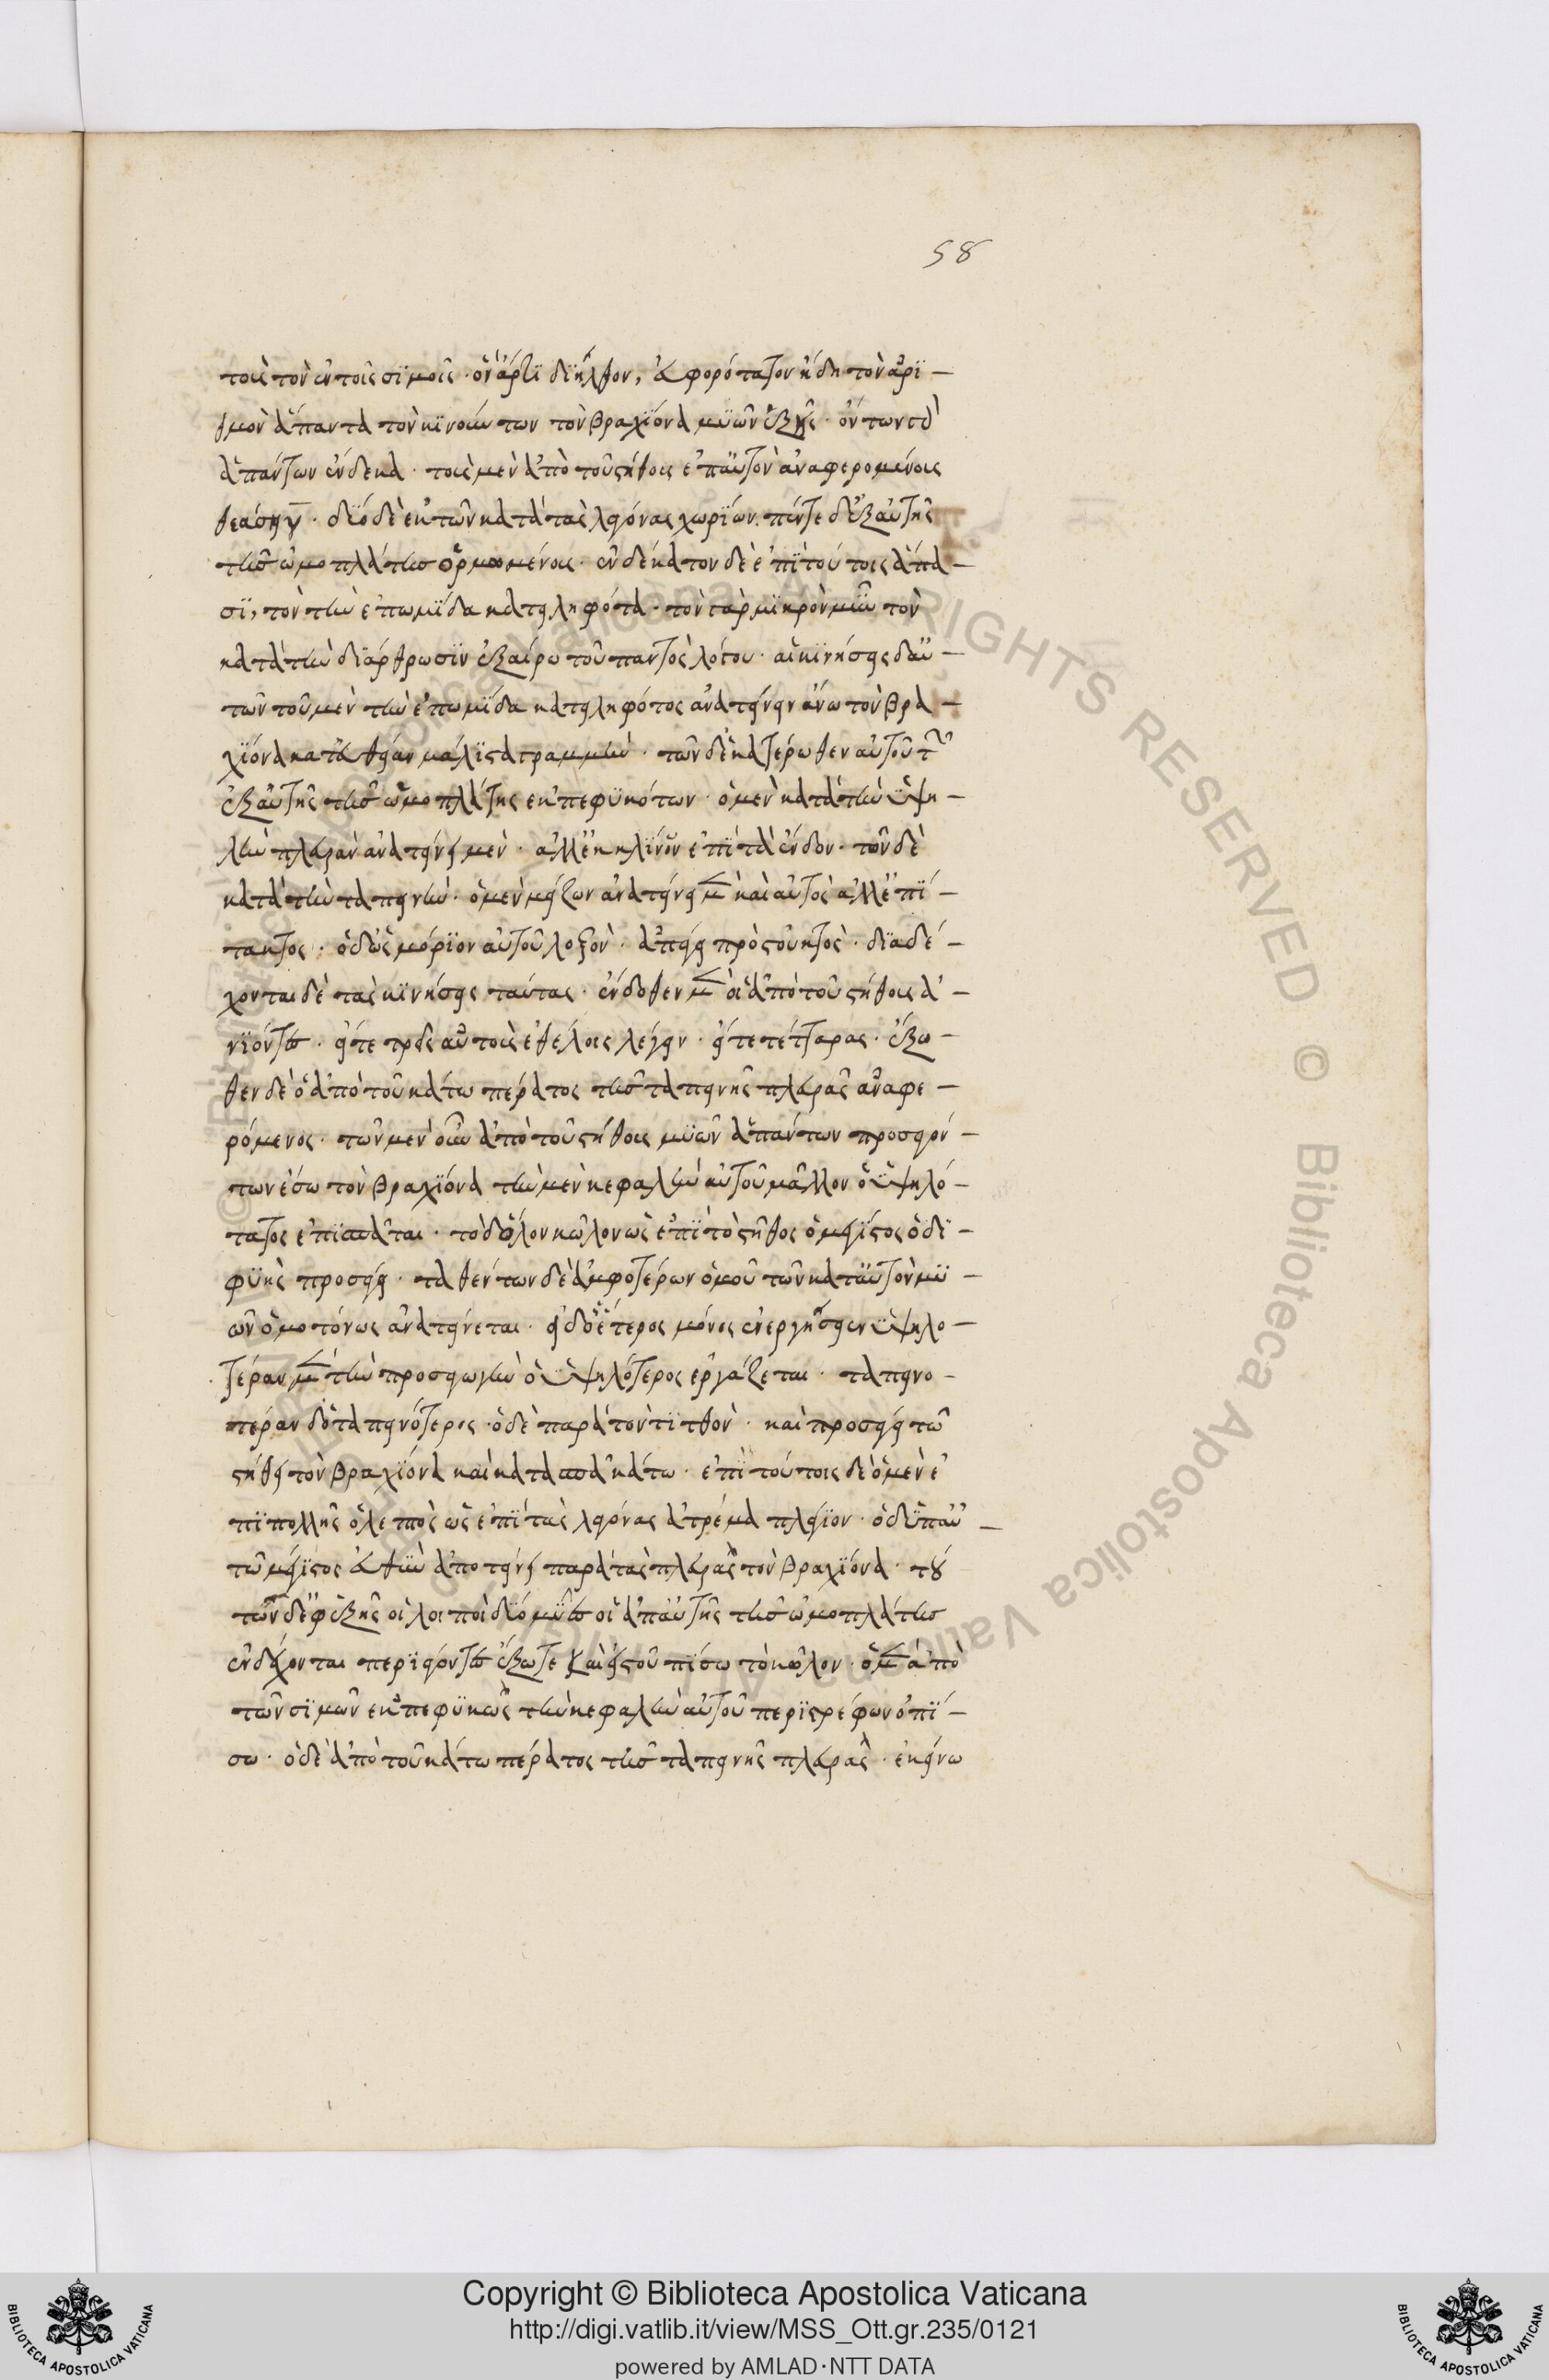 58
τοις τὸν ἐν τοῖς σιμοῖς· ὃν ἄρτι διῆλθον, εὐφορώτατον ἤδη τὸν ἀρι-
θμὸν ἅπαντα τὸν κινούντων τὸν βραχίονα μυῶν ἑξῆς· ὄντων δ
ἁπάντων ἕνδεκα· τοὺς μὲν ἀπὸ τοῦ στήθους ἐπ αὐτὸν ἀναφερομένους
θεάσῃ γ· δύο δὲ ἐκ τῶν κατὰ τὰς λαγόνας χωρίων· πέντε δ ἐξ αὐτῆς
τῆς ὠμοπλάτης ὁρμωμένους· ἑνδέκατον δὲ ἐπὶ τούτοις ἅπα-
σι, τὸν τὴν ἐπωμίδα κατειληφότα· τὸν γὰρ μικρὸν μῦν τὸν
κατὰ τὴν διάρθρωσιν ἐξαίρω τοῦ παντὸς λόγου· αἱ κινήσεις δ αὐ-
τῶν τοῦ μὲν τὴν ἐπωμίδα κατειληφότος ἀνατείνειν ἄνω τὸν βρα-
χίονα κατ εὐθεῖαν μάλιστα γραμμήν· τῶν δ ἑκατέρωθεν αὐτοῦ τ
ἐξ αὐτῆς τῆς ὠμοπλάτης ἐκπεφυκότων· ὁ μὲν κατὰ τὴν ὑψη-
λὴν πλευρὰν ἀνατείνει μὲν· ἀλλ ἐκκλίνων ἐπὶ τὰ ἔνδον· τῶν δὲ
κατὰ τὴν ταπεινήν· ὁ μὲν μείζων ἀνατείνει μ καὶ αὐτὸς ἀλλ ἐπὶ
τἀκτὸς· ὁ δ ὡς μόριον αὐτοῦ λοξὸν· ἀπάγει πρὸς τοὐκτὸς· διαδέ-
χονται δὲ τὰς κινήσεις ταύτας· ἔνδοθεν μ οἱ ἀπὸ τοῦ στήθους ἀ-
νιόντες· εἴτε τρεῖς αὐτοὺς ἐθέλοις λέγειν· εἴτε τέτταρας· ἔξω-
θεν δὲ ὁ ἀπὸ τοῦ κάτω πέρατος τῆς ταπεινῆς πλευρᾶς ἀναφε-
ρόμενος· τῶν μὲν οὖν ἀπὸ τοῦ στήθους μυῶν ἁπάντων προσαγόν-
των ἔσω τὸν βραχίονα τὴν μὲν κεφαλὴν αὐτοῦ μᾶλλον ὁ ὑψηλό-
τατος ἐπισπᾶται· τὸ δ ὅλον κῶλον ὡς ἐπὶ τὸ στῆθος ὁ μέγιστος ὁ δι-
φυὴς προσάγει· ταθέντων δὲ ἀμφοτέρων ὁμοῦ τῶν κατ αὐτὸν μυ-
ῶν ὁμοτόνως ἀνατείνεται· εἰ δ ὁ ἕτερος μόνος ἐνεργήσειεν ὑψηλο-
τέραν μ τὴν προσαγωγὴν ὁ ὑψηλότερος ἐργάζεται· ταπεινο-
τέραν δ ὁ ταπεινότερος· ὁ δὲ παρὰ τὸν τιτθὸν· καὶ προσάγει τῷ
στήθει τὸν βραχίονα καὶ κατασπᾷ κάτω· ἐπὶ τούτοις δὲ ὁ μὲν ἐ-
πιπολῆς ὁ λεπτὸς ὡς ἐπὶ τὰς λαγόνας ἀτρέμα πλησίον· ὁ δ ὑπ αὐ-
τῷ μέγιστος εὐθὺ ἀποτείνει παρὰ τὰς πλευρὰς τὸν βραχίονα· τού
των δ ἐφεξῆς οἱ λοιποὶ δύο μύες οἱ ἀπ αὐτῆς τῆς ὠμοπλάτης
ἐνδέχονται περιάγοντες ἔξω τε καὶ εἰς τοὐπίσω τὸ κῶλον· ὁ μ ἀπὸ
τῶν σιμῶν ἐκπεφυκὼς τὴν κεφαλὴν αὐτοῦ περιστρέφων ὀπί-
σω· ὁ δὲ ἀπὸ τοῦ κάτω πέρατος τῆς ταπεινῆς πλευρᾶς· ἐκείνω
Copyright © Biblioteca Apostolica Vaticana
http://digi.vatlib.it/view/MSS_Ott.gr.235/0121
powered by AMLAD·NTT DATA